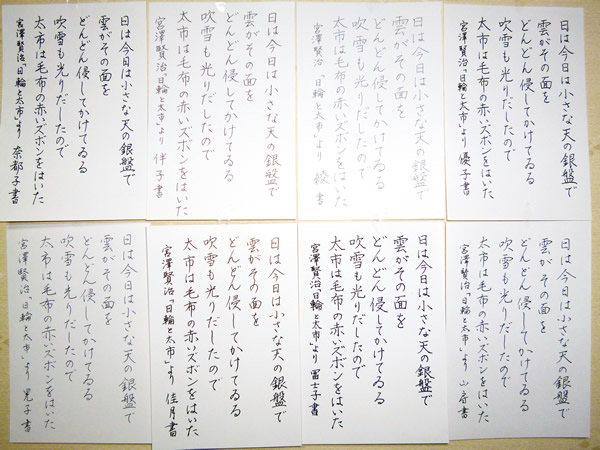 日は今日は小さな天の銀盤で
雲がその面を
どんどん侵してかけてゐる
吹雪も光りだしたので
太市は毛布の赤いズボンをはいた
宮澤賢治「日輪と太市」より 優子書
日は今日は小さな天の銀盤で
雲がその面を
どんどん侵してかけてゐる
吹雪も光りだしたので
太市は毛布の赤いズボンをはいた
宮澤賢治「日輪と太市」より 書
日は今日は小さな天の銀盤で
雲がその面を
どんどん侵してかけてゐる
吹雪も光りだしたので
太市は毛布の赤いズボンをはいた
宮澤賢治「日輪と太市」より 伴子書
日は今日は小さな天の銀盤で
雲がその面を
どんどん侵してかけてゐる
吹雪も光りだしたので
太市は毛布の赤いズボンをはいた
宮澤賢治「日輪と太市」より 奈都子書
日は今日は小さな天の銀盤で
雲がその面を
どんどん侵してかけてゐる
吹雪も光りだしたので
太市は毛布の赤いズボンをはいた
宮澤賢治「日輪と太市」より 書
日は今日は小さな天の銀盤で
雲がその面を
どんどん侵してかけてゐる
吹雪も光りだしたので
太市は毛布の赤いズボンをはいた
宮澤賢治「日輪と太市」より 冨士子書
日は今日は小さな天の銀盤で
雲がその面を
どんどん侵してかけてゐる
吹雪も光りだしたので
太市は毛布の赤いズボンをはいた
宮澤賢治「日輪と太市」より 佳月書
日は今日は小さな天の銀盤で
雲がその面を
どんどん侵してかけてゐる
吹雪も光りだしたので
太市は毛布の赤いズボンをはいた
宮澤賢治「日輪と太市」より 子書